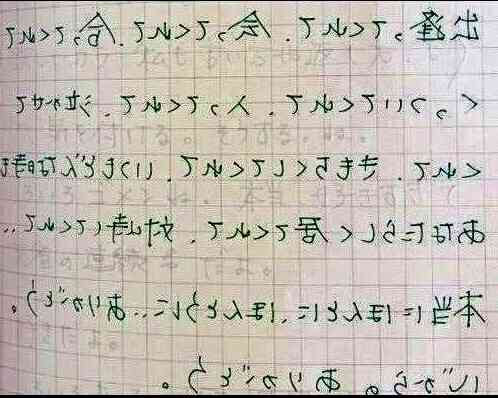 出逢ってくれて、会ってくれて、合ってくれて
くっついてくれて、入ってくれて、泣かせて
くれて、きもちくしてくれて、いつもどんな時も
あなたらしく居てくれて、対峙してくれて…
本当にほんとに、ほんとうに…ありがとう。
心から。ありがとう。